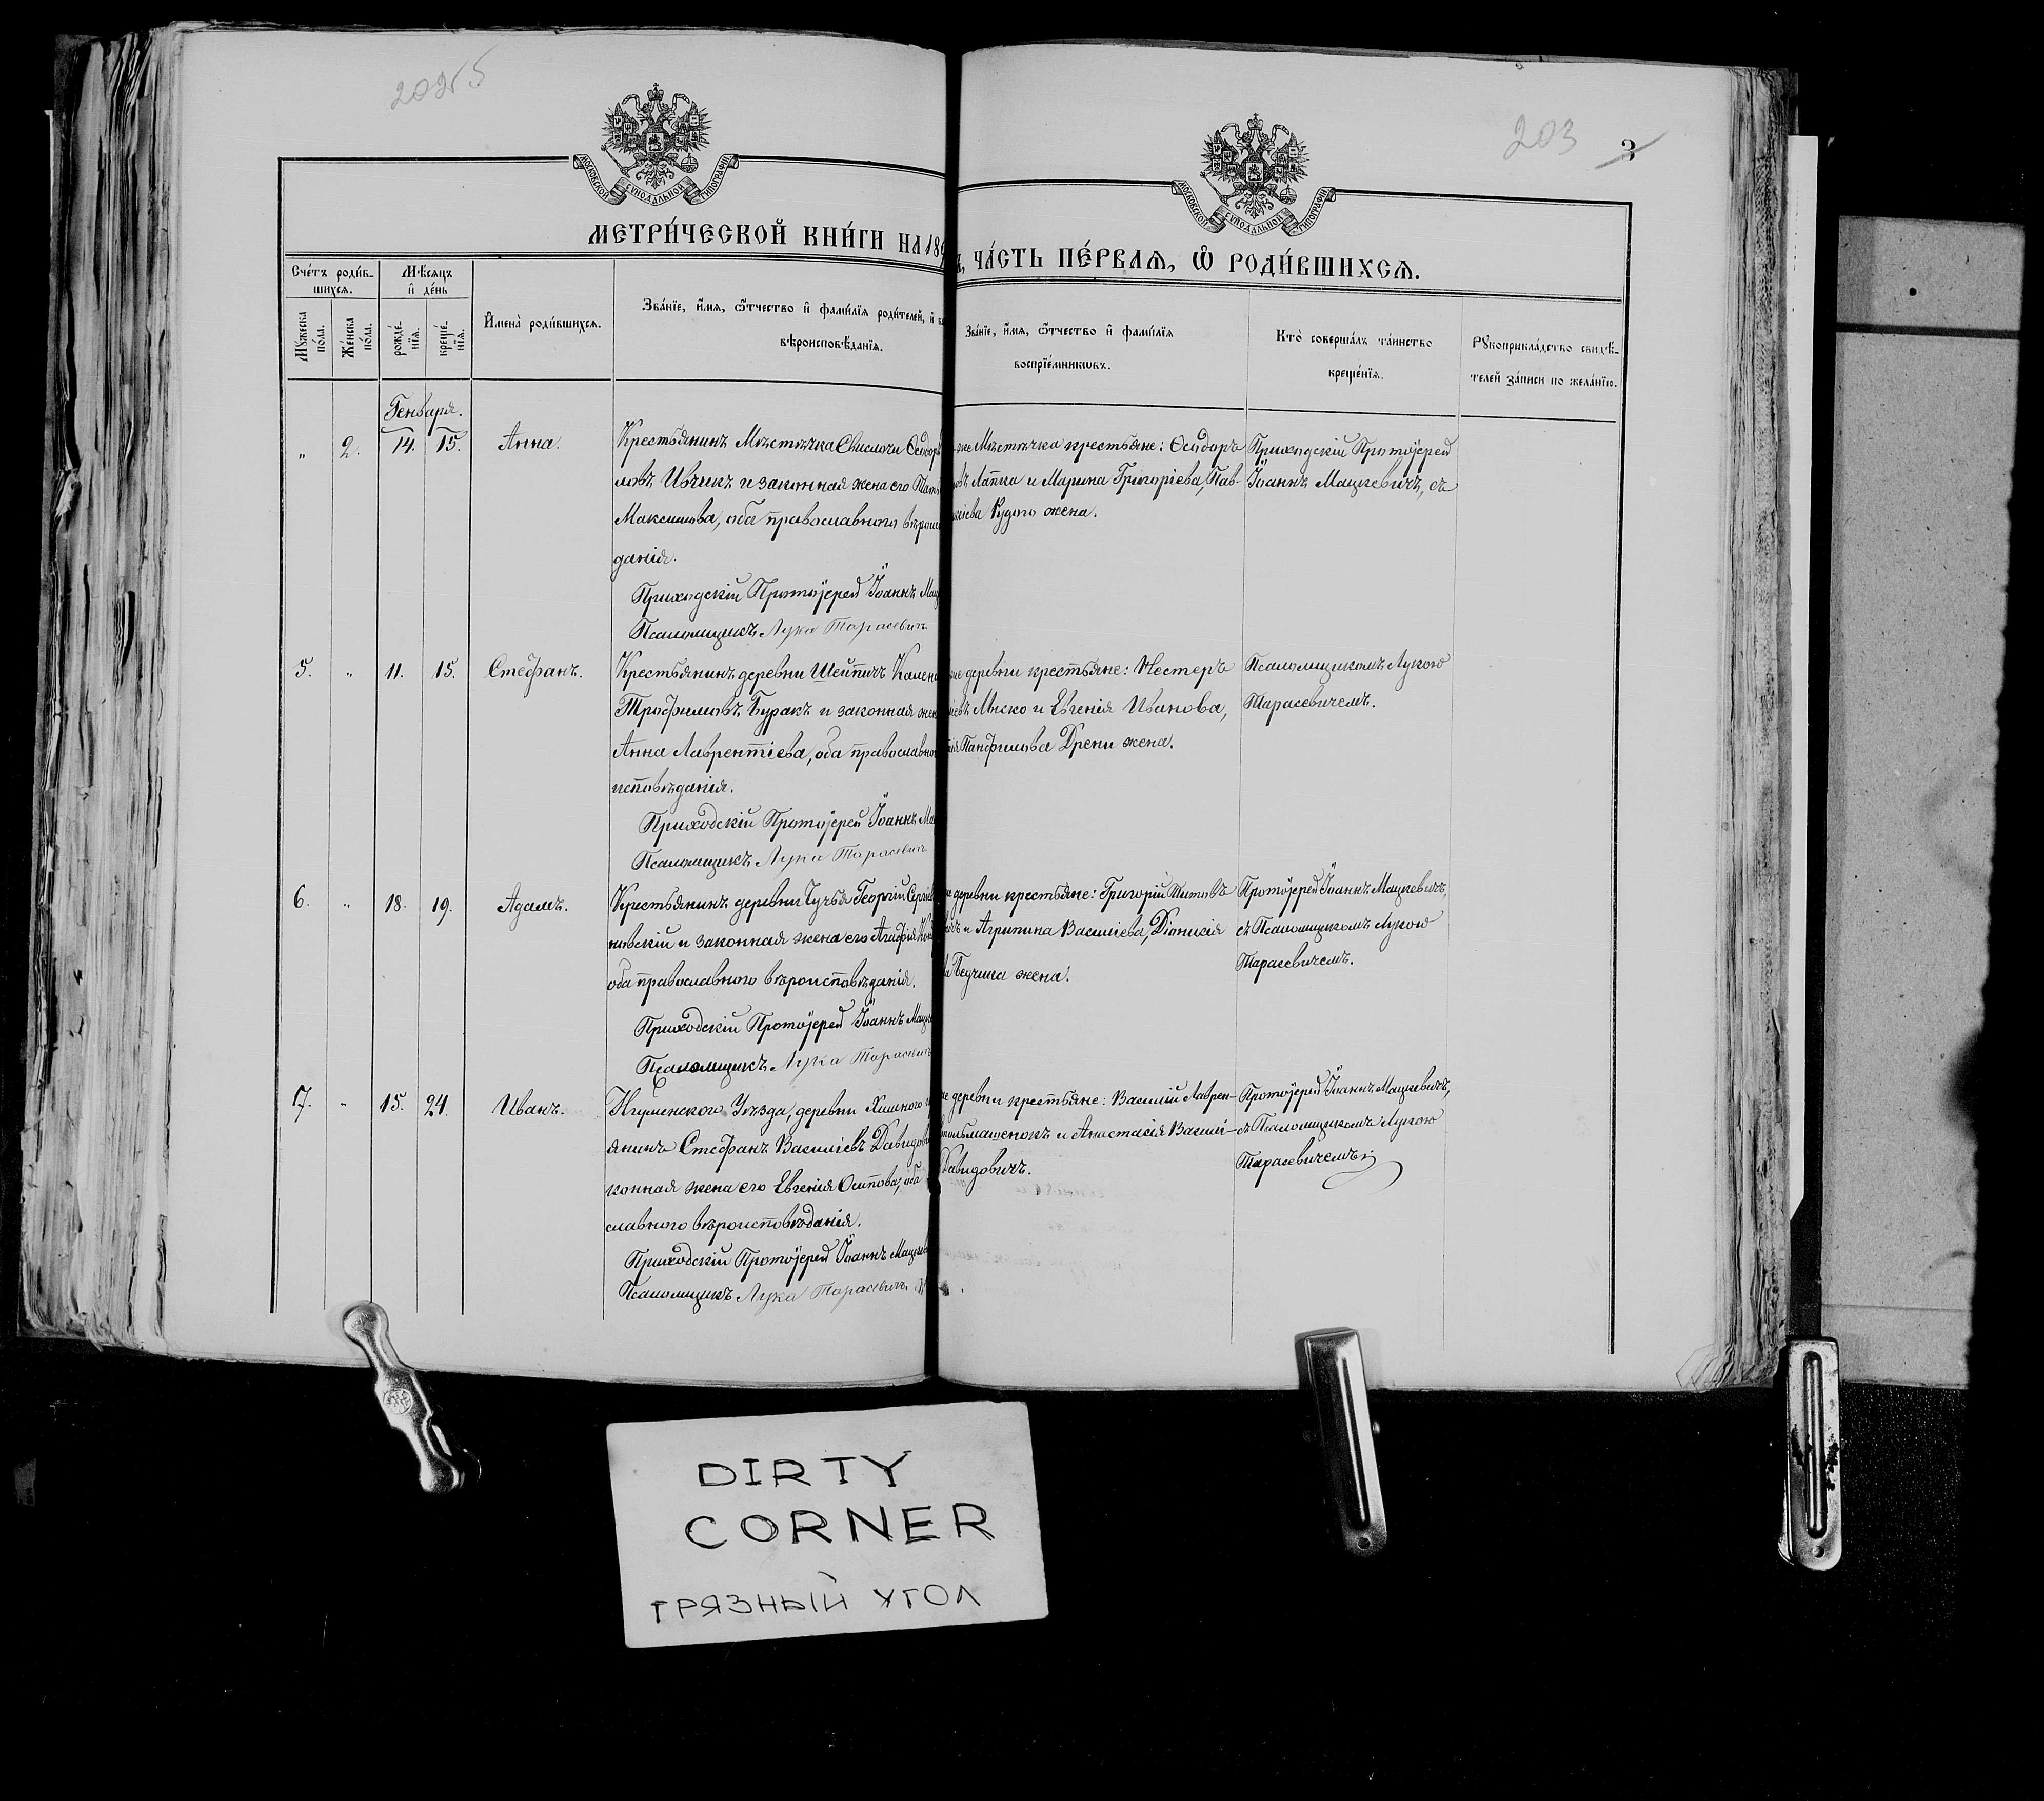 203
3
МОСКОВСКОЙ СУНОДАЛЬНОЙ ТИПОГРАФІИ
МОСКОВСКОЙ СУНОДАЛЬНОЙ ТИПОГРАФІИ
МЕТРИ́ЧЕСКОЙ КНИ́ГИ НА 189
ЧА́СТЬ ПЕ́РВАѦ, Ѽ РОДИ́ВШИХСѦ.
Сче́тъ роди́в-
шихсѧ.
Мѣ́сѧцъ
и҆ де́нь
Мꙋ́жеска
по́ла.
Же́нска
по́ла.
рожде́-
нїѧ.
креще́-
нїѧ.
И҆мена̀ роди́вшихсѧ.
Зва́нїе, и҆́мѧ, ѻ҆́тчество и҆ фами́лїѧ роди́телей, и҆
вѣроисповѣ́данїѧ.
Зва́нїе, и҆́мѧ, ѻ҆́тчество и҆ фами́лїѧ
воспрїе́мникѡвъ.
Кто̀ соверша́лъ та́инство
креще́нїѧ.
Рꙋкоприкла́дство свидѣ́-
телей за́писи по жела́нїю.
Генваря.
„ 2. 14. 15. Анна.
Крестьянинъ Мѣстечка Свислочи Ѳеодор
ловъ Ивчикъ и законная жена его Тать
Максимова, оба православнаго вѣроис
данія.
Приходскій Протоіерей Іоаннъ Мац
Псаломщикъ Лука Тарасевичъ
же Мѣстечка крестьяне: Ѳеодоръ
Лапка и Марина Григоріева, Пав-
Рудого жена.
Приходскій Протоіерей
Іоаннъ Мацкевичъ, съ
5. „ 11. 15. Стефанъ.
Крестьянинъ деревни Шейпичъ Калени
Трофимовъ Буракъ и законная жен
Анна Лаврентіева, оба православног
исповѣданія.
Приходскій Протоіерей Іоаннъ Ма
Псаломщикъ Лука Тарасевичъ
же деревни крестьяне: Нестеръ
Миско и Евгенія Иванова,
Панфилова Дрени жена.
Псаломщикомъ Лукою
Тарасевичемъ.
6. „ 18. 19. Адамъ.
Крестьянинъ деревни Чучья Георгій Сергіев
новскій и законная жена его Агафія
оба православнаго вѣроисповѣданія.
Приходскій Протоіерей Іоаннъ Мацке
Псаломщикъ Лука Тарасевичъ
деревни крестьяне: Григорій Титовъ
и Агрипина Василіева, Діонисія
жена.
Протоіерей Іоаннъ Мацкевичъ,
съ Псаломщикомъ Лукою
Тарасевичемъ.
7. „ 15. 24. Иванъ.
Игуменскаго Уѣзда, деревни
янинъ Стефанъ Василіевъ Давидови
конная жена его Евгенія Осипова, оба
славнаго вѣроисповѣданія.
Приходскій Протоіерей Іоаннъ Мацкев
Псаломщикъ Лука Тарасевичъ
деревни крестьяне: Василій Лаврен-
и Анастасія Василі-
Давидовичъ.
Протоіерей Іоаннъ Мацкевичъ,
съ Псаломщикомъ Лукою
Тарасевичемъ;
DIRTY
CORNER
ГРЯЗНЫЙ УГОЛ